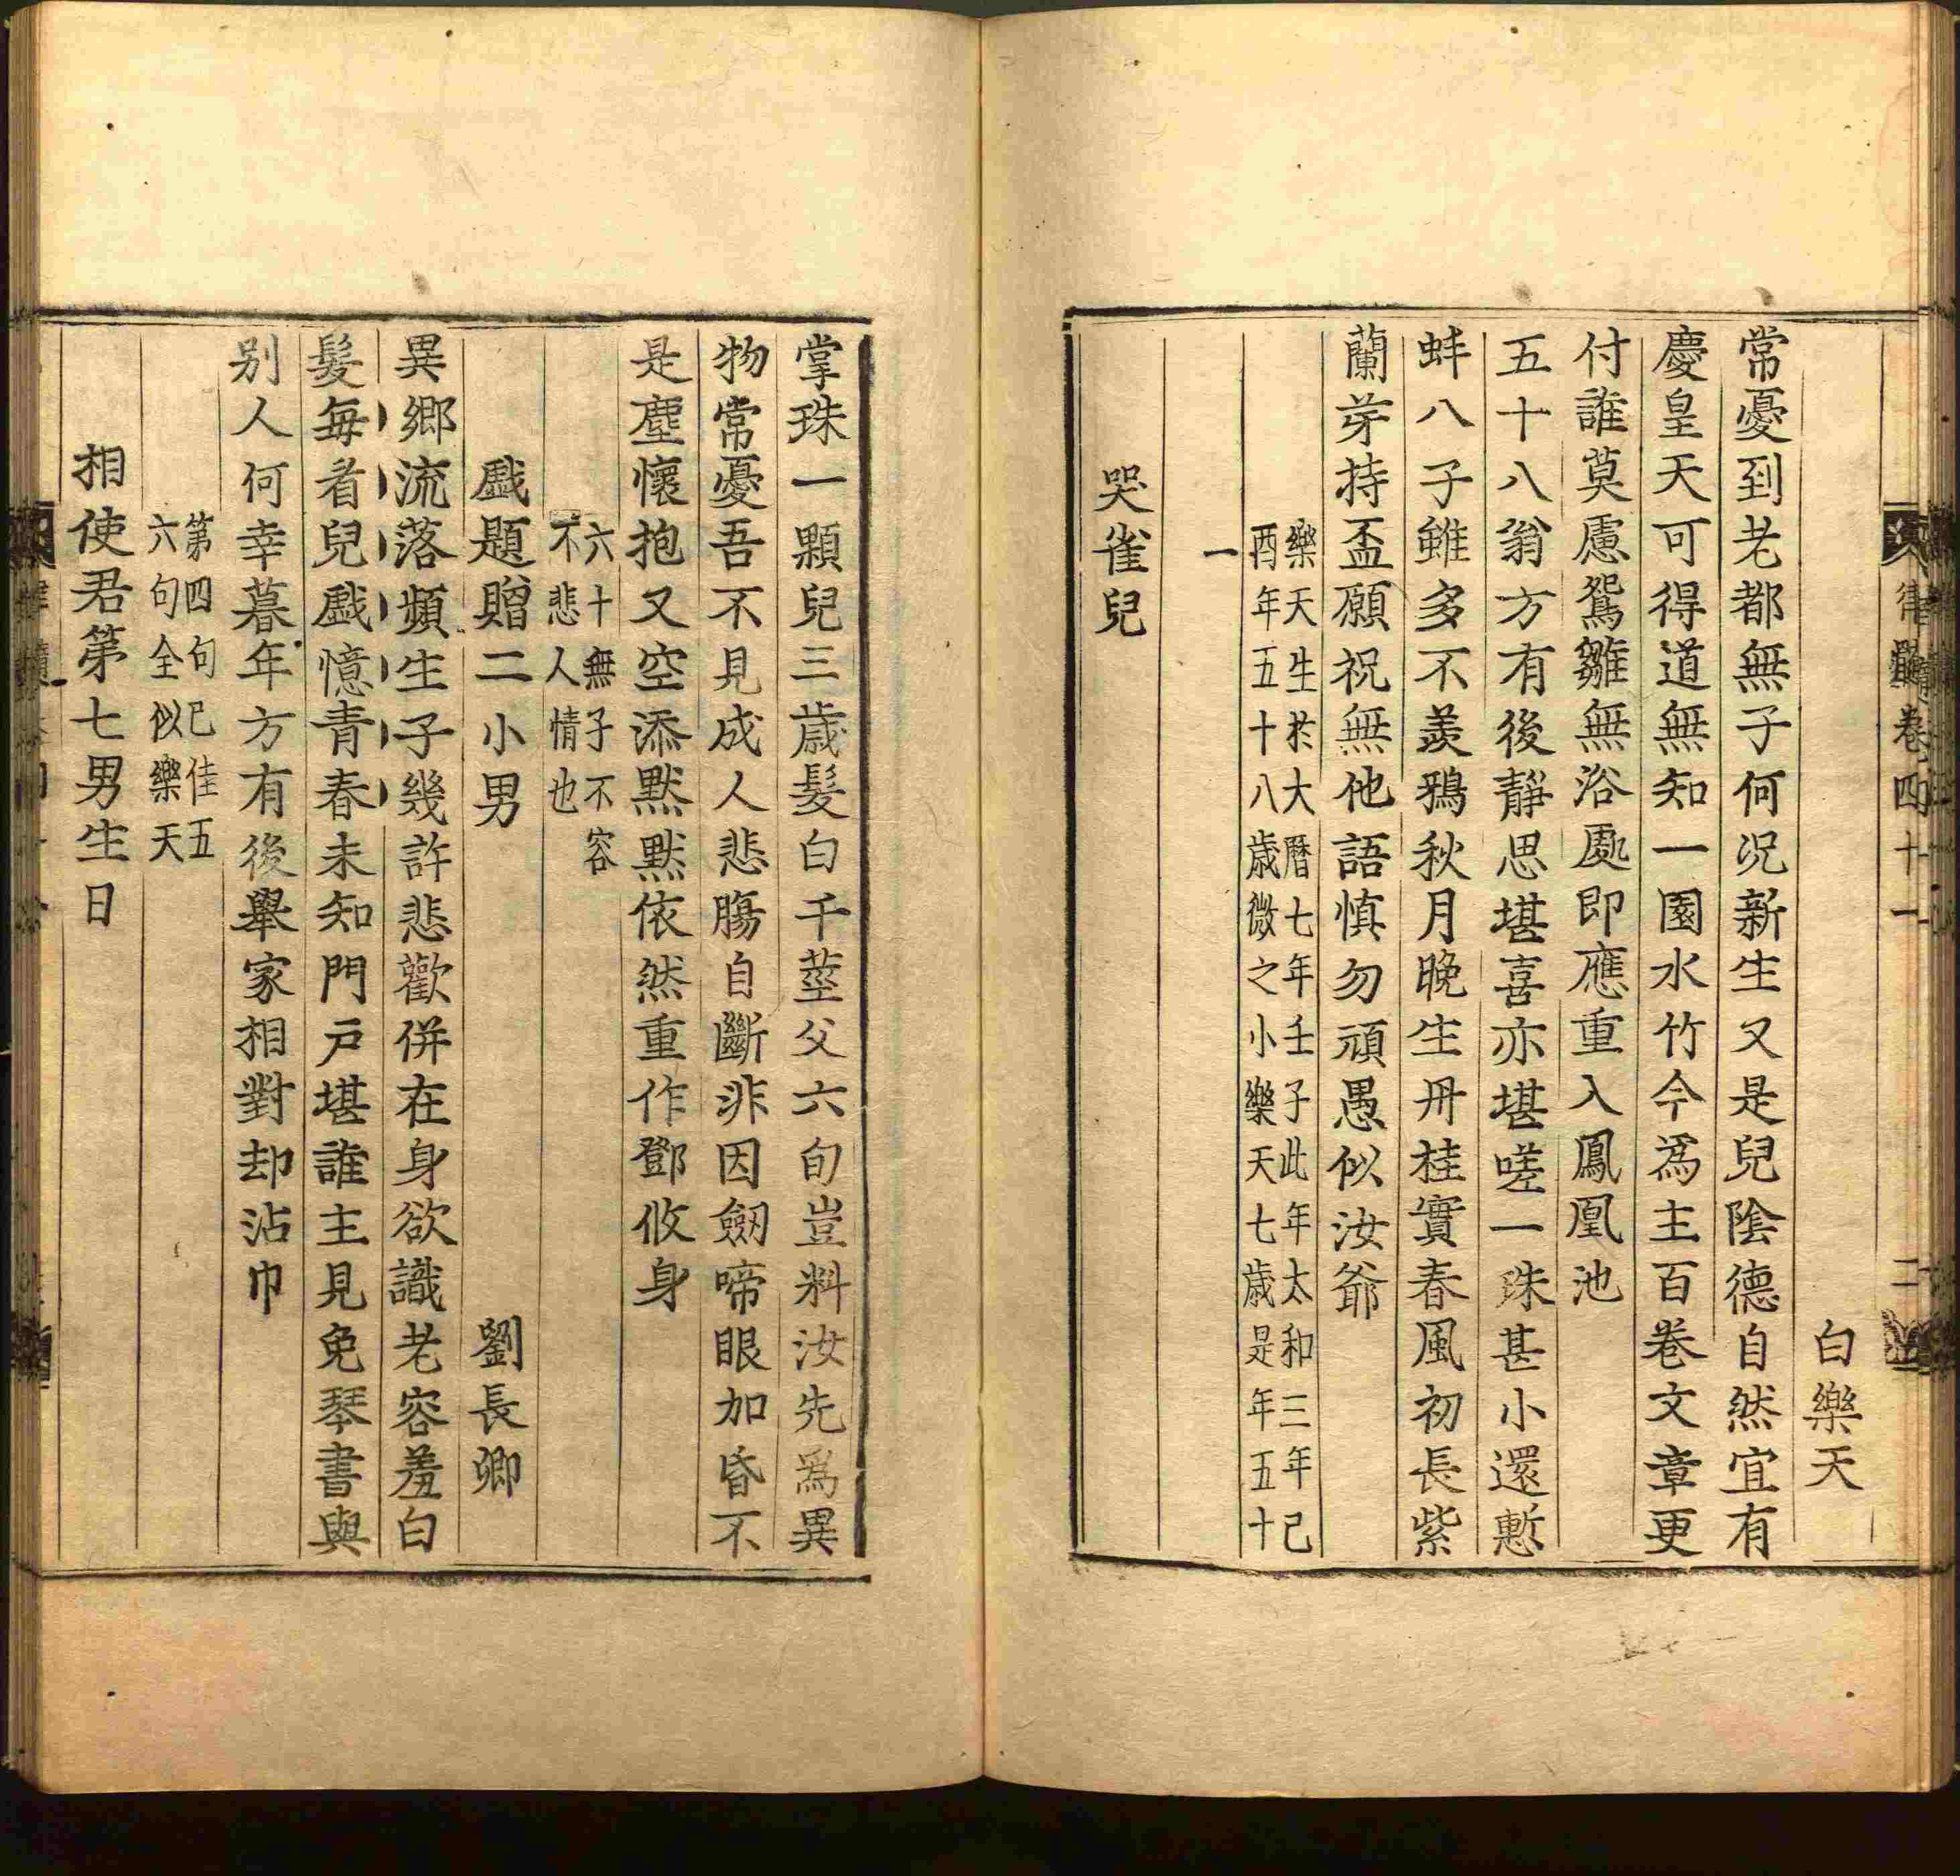 律髓卷四十一
二
白樂天
常憂到老都無子何況新生又是兒隂德自然宜有
慶皇天可得道無知一園水竹今爲主百卷文章更
付誰莫慮鴛雛無浴處即應重入鳳凰池
五十八翁方有後靜思堪喜亦堪嗟一珠甚小還慙
蚌八子雖多不羨鴉秋月晚生丹桂實春風初長紫
蘭芽持盃願祝無他語慎勿頑愚似汝爺
樂天生於大曆七年壬子此年太和三年己
酉年五十八歳微之小樂天七歳是年五十
一
哭崔兒
掌珠一顆兒三歳髮白千莖父六旬豈料汝先爲異
物常憂吾不見成人悲膓自斷非因劒啼眼加昏不
是塵懷抱又空添黙黙依然重作鄧攸身
六十無子不容
不悲人情也
戲題贈二小男
劉長卿
異郷流落頻生子幾許悲歡併在身欲識老容羞白
髮每看兒戲憶青春未知門戸堪誰主見免琴書與
别人何幸暮年方有後舉家相對却沾巾
第四句已佳五
六句全似樂天
相使君第七男生日